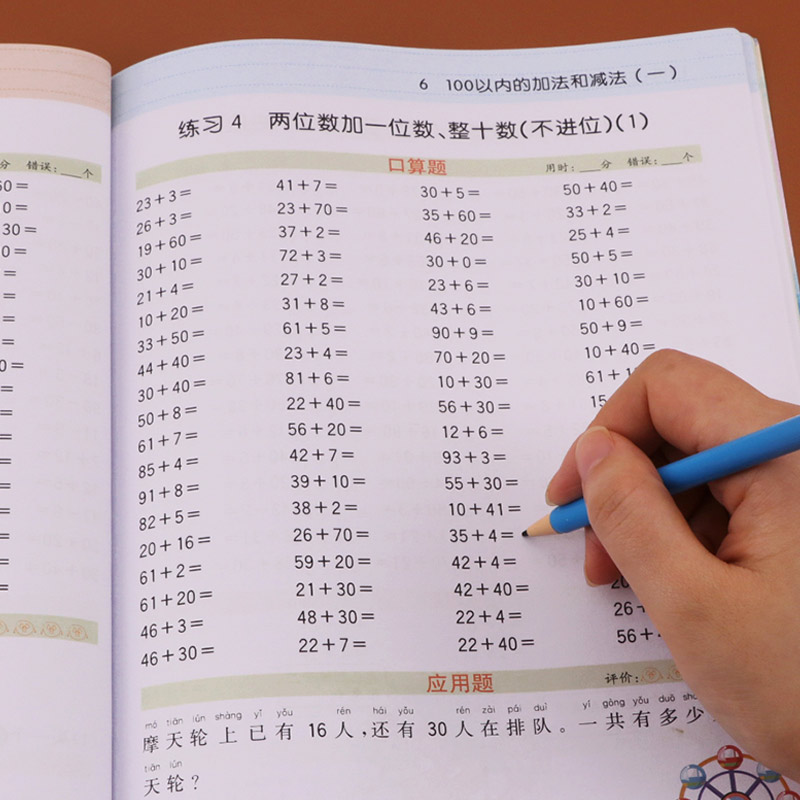 分 错误：___个
6 100以内的加法和减法（一）
练习 4 两位数加一位数、整十数（不进位）（1）
口算题 用时：___分 错误：___个
23＋3＝ 41＋7＝ 30＋5＝ 50＋40＝
26＋3＝ 23＋70＝ 35＋60＝ 33＋2＝
19＋60＝ 37＋2＝ 46＋20＝ 25＋4＝
30＋10＝ 72＋3＝ 30＋0＝ 50＋5＝
21＋4＝ 27＋2＝ 23＋6＝ 30＋10＝
10＋20＝ 31＋8＝ 43＋6＝ 10＋60＝
33＋50＝ 61＋5＝ 90＋9＝ 50＋9＝
44＋40＝ 23＋4＝ 70＋20＝ 10＋40＝
30＋40＝ 81＋6＝ 10＋30＝ 61＋
50＋8＝ 22＋40＝ 56＋30＝ 15
61＋7＝ 56＋20＝ 12＋6＝
85＋4＝ 42＋7＝ 93＋3＝
91＋8＝ 39＋10＝ 55＋30＝
82＋5＝ 38＋2＝ 10＋41＝
20＋16＝ 26＋70＝ 35＋4＝
61＋2＝ 59＋20＝ 42＋4＝
61＋20＝ 21＋30＝ 42＋40＝ 20
46＋3＝ 48＋30＝ 22＋4＝ 26＋
46＋30＝ 22＋7＝ 22＋40＝ 56＋
应用题 评价：
mó tiān lún shàng yǐ yǒu rén hái yǒu rén zài pái duì yí gòng yǒu duō
摩天轮上已有 16 人，还有 30 人在排队。一共有多少
tiān lún
天轮？